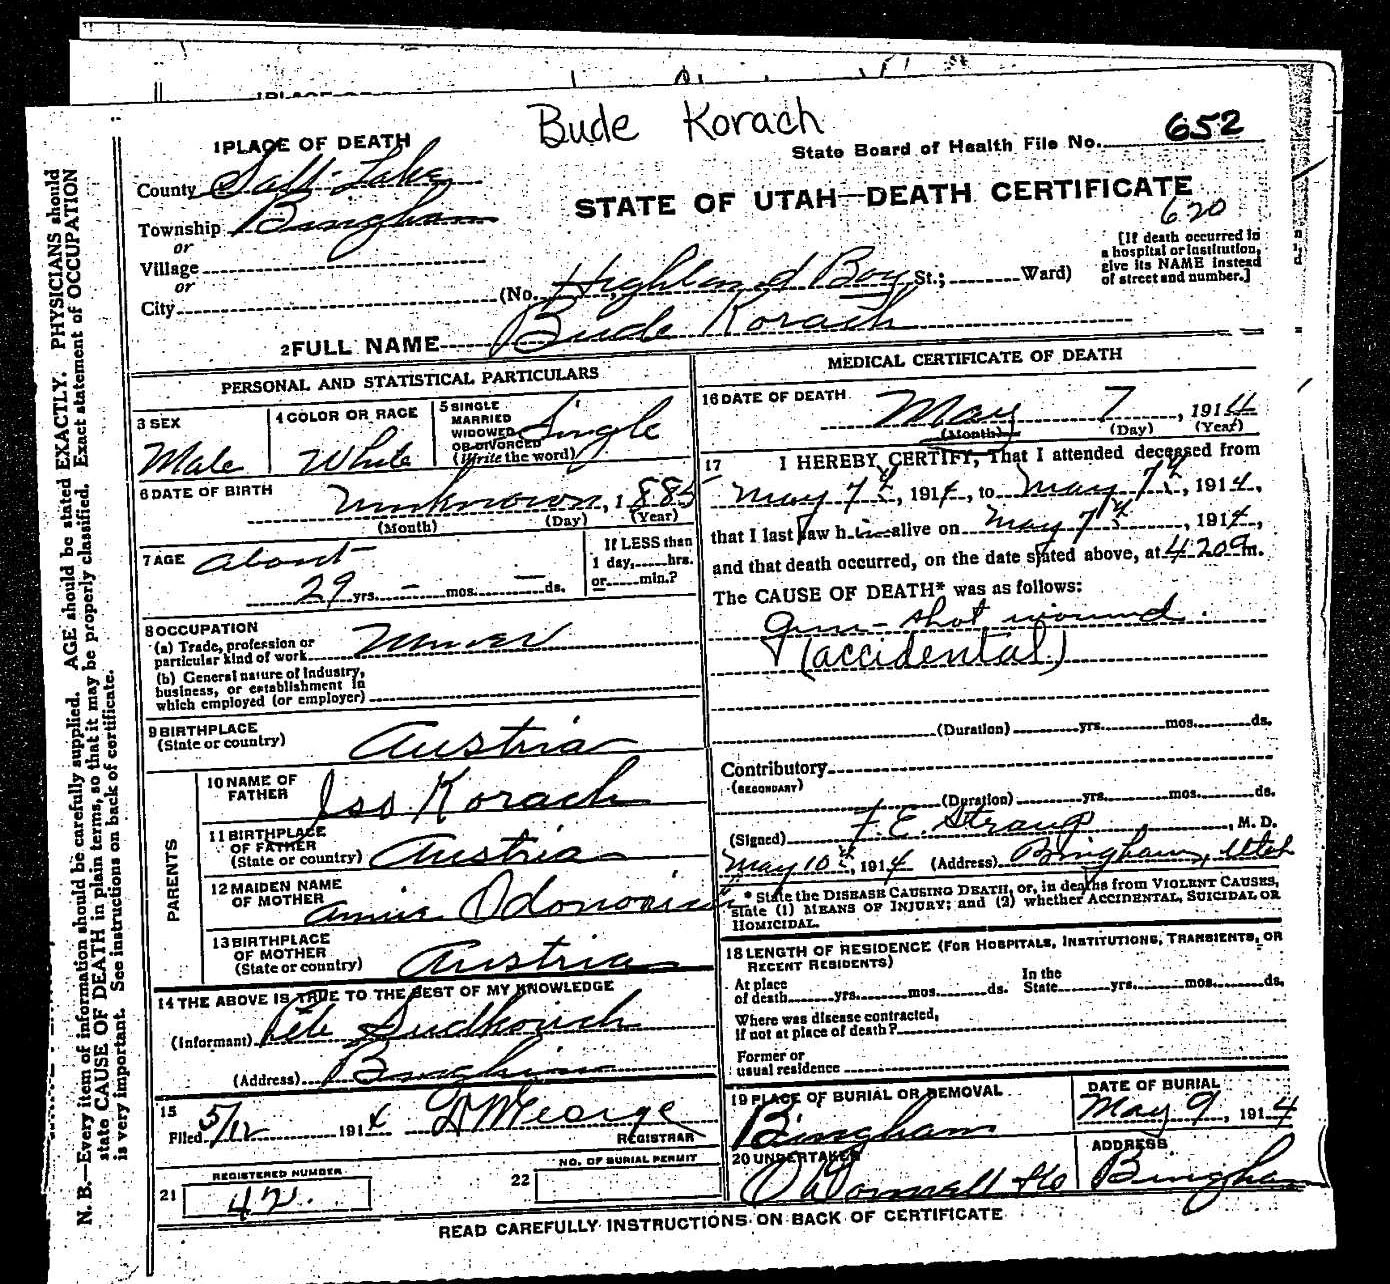 Bude Korach
1 PLACE OF DEATH
State Board of Health File No. 652
County Salt Lake
STATE OF UTAH—DEATH CERTIFICATE
620
Township Bingham
or
Village
or
City
(No. Highland Boy St.; Ward)
[If death occurred in
a hospital or institution,
give its NAME instead
of street and number.]
2 FULL NAME Bude Korach
PERSONAL AND STATISTICAL PARTICULARS
3 SEX
Male
4 COLOR OR RACE
White
5 SINGLE
MARRIED
WIDOWED
OR DIVORCED
(Write the word)
Single
6 DATE OF BIRTH
unknown, 1885
(Month) (Day) (Year)
7 AGE about
29 yrs. - mos. - ds.
If LESS than
1 day, hrs.
or min.?
8 OCCUPATION
(a) Trade, profession or
particular kind of work Miner
(b) General nature of Industry,
business, or establishment in
which employed (or employer)
9 BIRTHPLACE
(State or country) Austria
PARENTS
10 NAME OF
FATHER Iso Korach
11 BIRTHPLACE
OF FATHER
(State or country) Austria
12 MAIDEN NAME
OF MOTHER Annie
13 BIRTHPLACE
OF MOTHER
(State or country) Austria
14 THE ABOVE IS TRUE TO THE BEST OF MY KNOWLEDGE
(Informant) Pete
(Address) Bingham
15
Filed 5/12 1914
REGISTRAR
REGISTERED NUMBER
21 42.
NO. OF BURIAL PERMIT
22
MEDICAL CERTIFICATE OF DEATH
16 DATE OF DEATH
May 7, 1914
(Month) (Day) (Year)
17 I HEREBY CERTIFY, That I attended deceased from
May 7th, 1914, to May 7th, 1914,
that I last saw him alive on May 7th, 1914,
and that death occurred, on the date stated above, at 4 20 a m.
The CAUSE OF DEATH* was as follows:
gun-shot wound.
(accidental)
(Duration) yrs. mos. ds.
Contributory
(SECONDARY)
(Duration) yrs. mos. ds.
(Signed) F. E. Straup, M. D.
May 10th, 1914 (Address) Bingham, Utah
* State the DISEASE CAUSING DEATH, or, in deaths from VIOLENT CAUSES,
state (1) MEANS OF INJURY; and (2) whether ACCIDENTAL, SUICIDAL OR
HOMICIDAL.
18 LENGTH OF RESIDENCE (FOR HOSPITALS, INSTITUTIONS, TRANSIENTS, OR
RECENT RESIDENTS)
At place
of death yrs. mos. ds.
In the
State yrs. mos. ds.
Where was disease contracted,
if not at place of death?
Former or
usual residence
19 PLACE OF BURIAL OR REMOVAL
Bingham
DATE OF BURIAL
May 9, 1914
20 UNDERTAKER
O'Donnell & Co
ADDRESS
Bingham
READ CAREFULLY INSTRUCTIONS ON BACK OF CERTIFICATE
N. B.—Every item of information should be carefully supplied. AGE should be stated EXACTLY. PHYSICIANS should
state CAUSE OF DEATH in plain terms, so that it may be properly classified. Exact statement of OCCUPATION
is very important. See instructions on back of certificate.